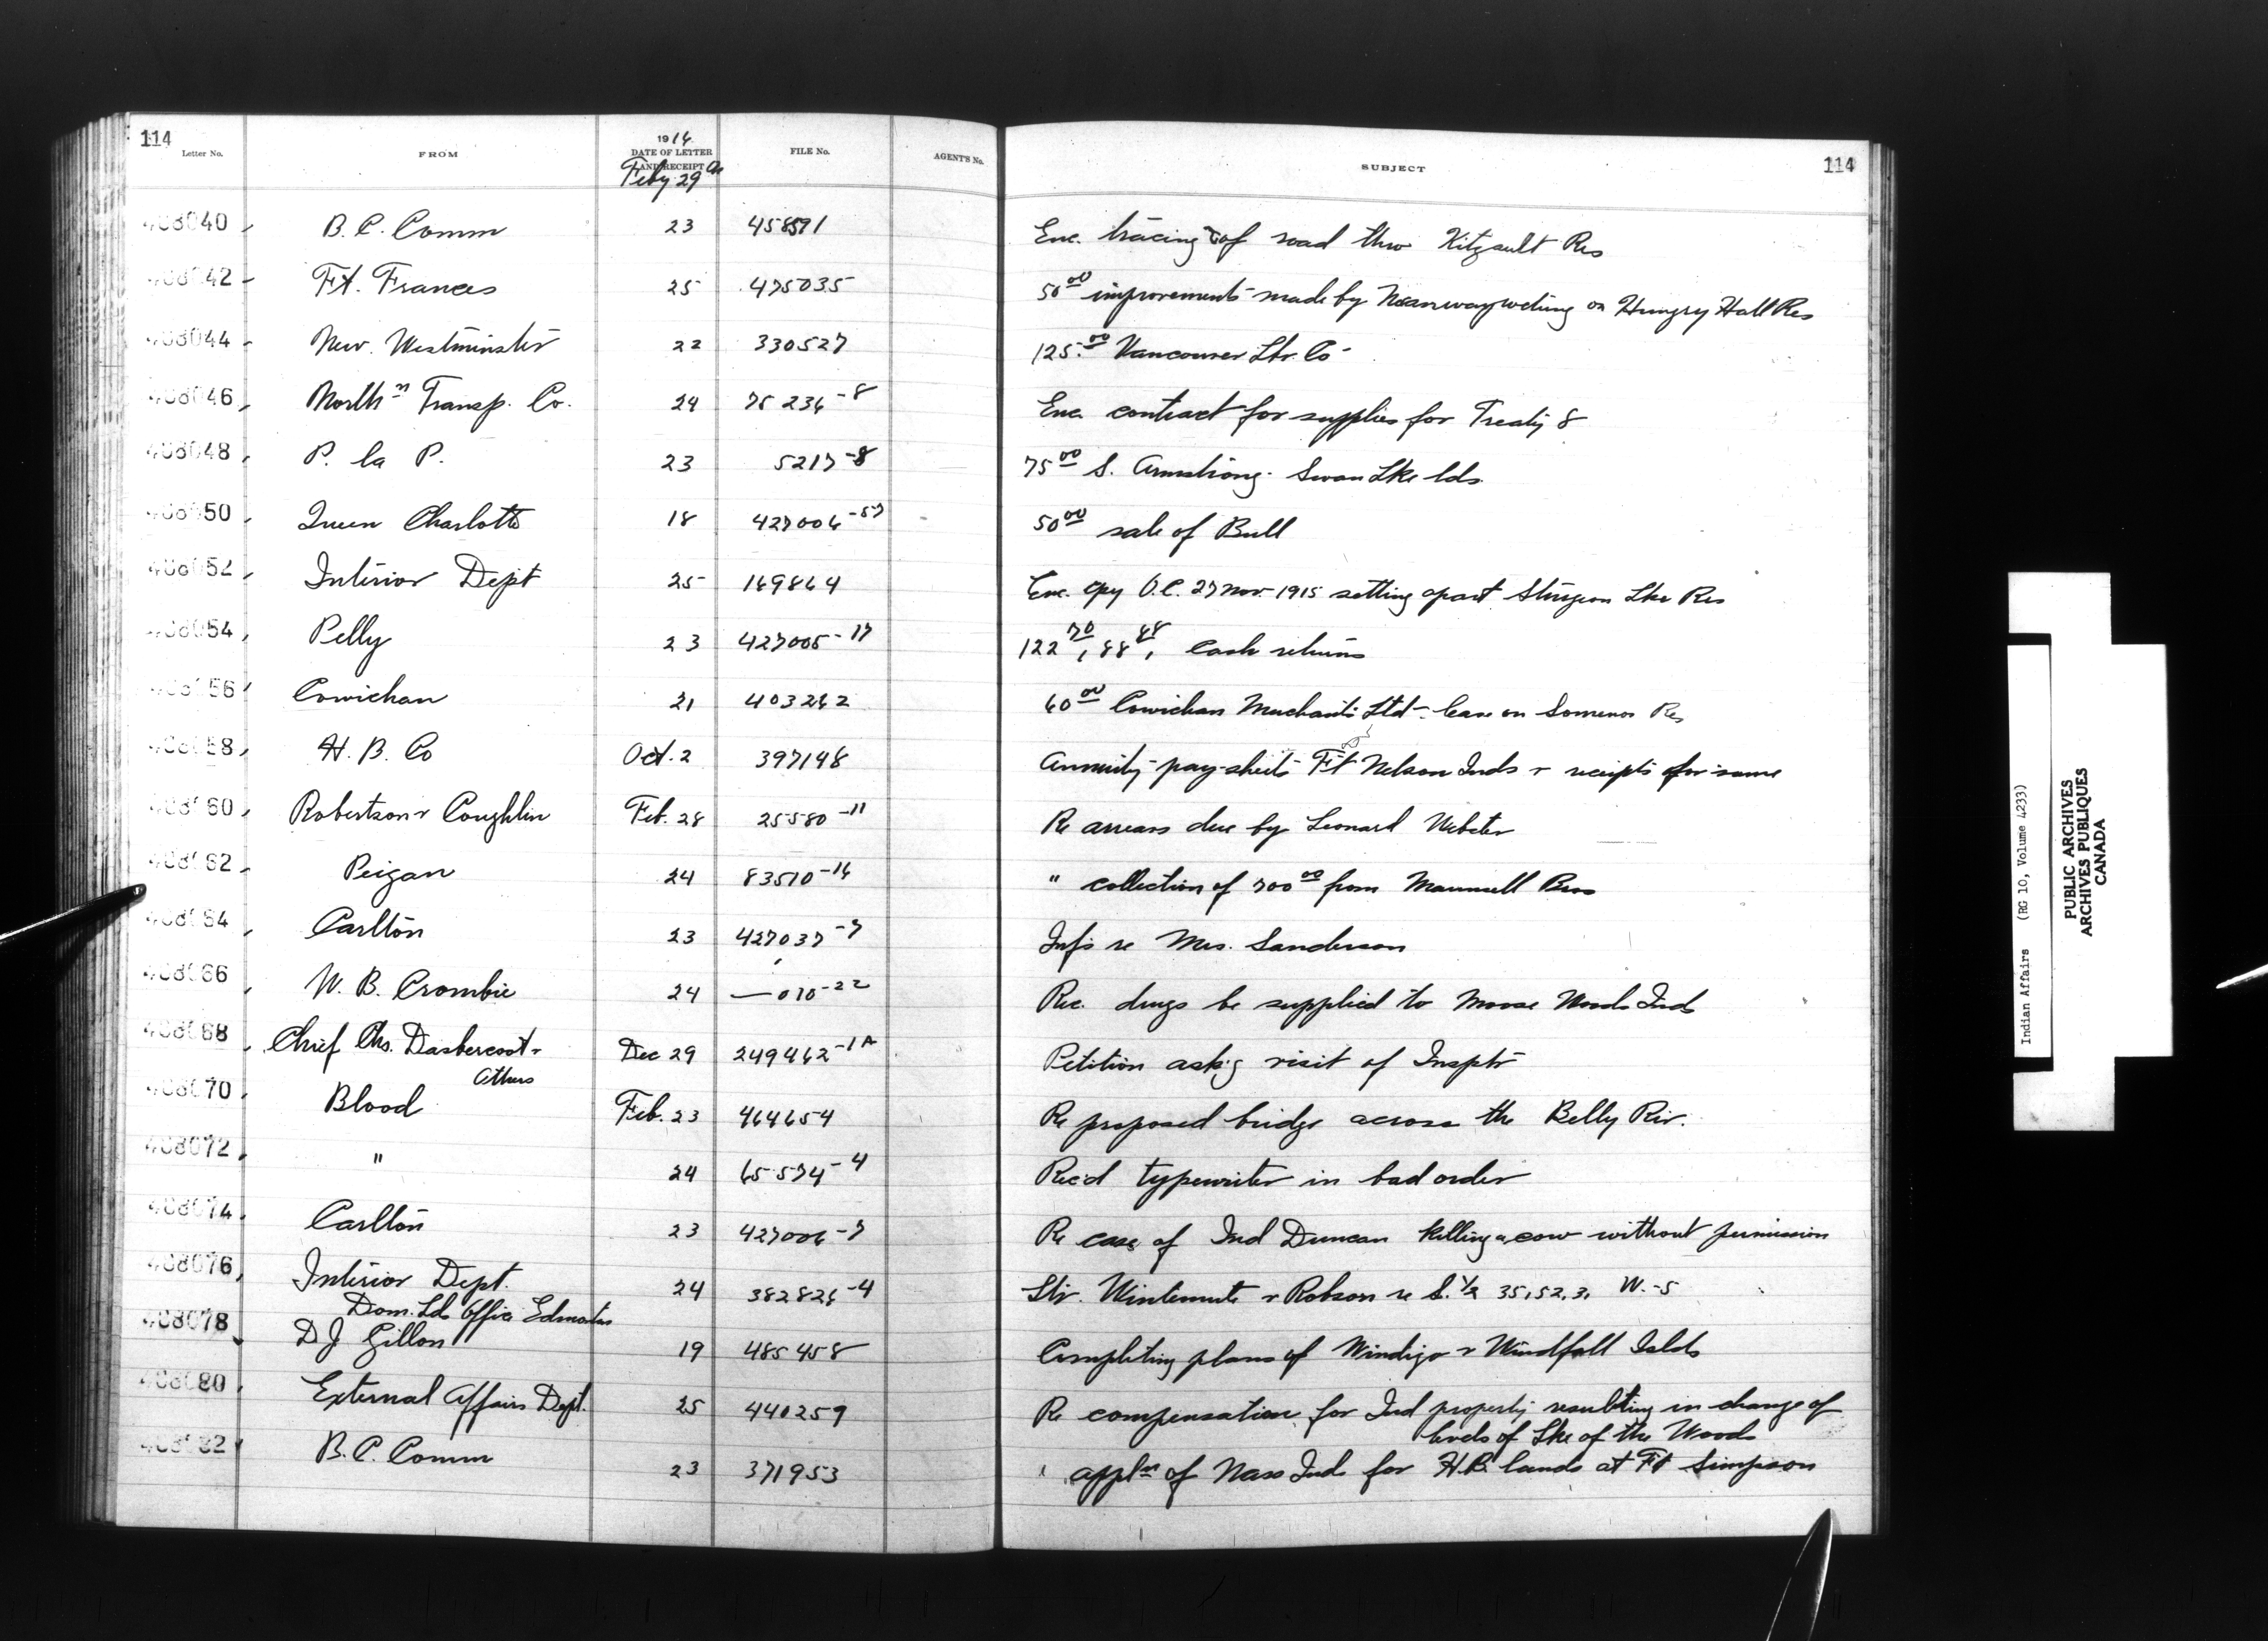 114
Letter No. FROM 1916 DATE OF LETTER AND RECEIPT FILE No. AGENT'S No. SUBJECT 114
Feby 29
408040 B. C. Comm 23 458591 Enc. tracing of road thro Kitzault Res
408042 Ft. Frances 25 475035 50.00 improvements made by on Hungry Hall Res
408044 New Westminster 22 330527 125.00 Vancouver Lbr. Co
408046 North'n Transp. Co. 24 75236-8 Enc. contract for supplies for Treaty 8
408048 P. la P. 23 5217-8 75.00 S. Armstrong. Swan Lke lds.
408050 Queen Charlotte 18 427006-57 50.00 sale of Bull
408052 Interior Dept 25 169864 Enc. cpy O.C. 27 Nov. 1915 setting apart Sturgeon Lke Res
408054 Pelly 23 427005-17 122.70, 88.88, Cash returns
408056 Cowichan 21 403262 60.00 Cowichan Merchants Ltd - lease on Somenos Res
408058 H. B. Co Oct. 2 397148 Annuity pay-sheets Ft Nelson Inds & receipts for same
408060 Robertson & Coughlin Feb. 28 25580-11 Re arrears due by Leonard Webster
408062 Peigan 24 83510-16 " collection of 700.00 from Maunsell Bros
408064 Carlton 23 427037-7 Info re Mrs. Sanderson
408066 W. B. Crombie 24 — 010-22 Rec. drugs be supplied to Moose Woods Inds
408068 Chief Chs. Dasbercoot & Dec 29 249462-1A Petition ask'g visit of Insptr
Others
408070 Blood Feb. 23 464654 Re proposed bridge across the Belly Riv.
408072 " 24 65574-4 Rec'd typewriter in bad order
408074 Carlton 23 427006-7 Re case of Ind Duncan killing a cow without permission
408076 Interior Dept. 24 382826-4 Ltr. Wintemute & Robson re S. ½ 35, 52, 3, W.-5
Dom. Ld. Office Edmonton
408078 D J Gillon 19 485458 Completing plans of Windigo & Windfall Islds
408080 External Affairs Dept. 25 440259 Re compensation for Ind property resulting in change of
levels of Lke of the Woods
408082 B. C. Comm 23 371953 " appl'n of Nass Inds for H.B. lands at Ft Simpson
Indian Affairs (RG 10, Volume 4233)
PUBLIC ARCHIVES
ARCHIVES PUBLIQUES
CANADA